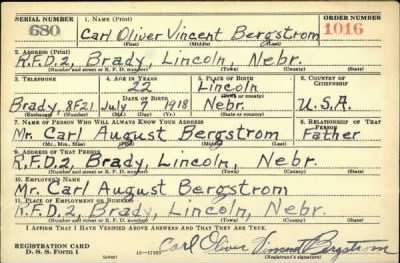 SERIAL NUMBER 1. NAME (Print) ORDER NUMBER
680 Carl Oliver Vincent Bergstrom 1016
(First) (Middle) (Last)
2. ADDRESS (Print)
R.F.D. 2, Brady, Lincoln, Nebr.
(Number and street or R. F. D. number) (Town) (County) (State)
3. TELEPHONE 4. AGE IN YEARS 5. PLACE OF BIRTH 6. COUNTRY OF CITIZENSHIP
22 Lincoln
DATE OF BIRTH (Town or county)
Brady, 8F21 July 7 1918 Nebr. U.S.A.
(Exchange) (Mo.) (Day) (Yr.) (State or country)
7. NAME OF PERSON WHO WILL ALWAYS KNOW YOUR ADDRESS 8. RELATIONSHIP OF THAT PERSON
Mr. Carl August Bergstrom Father
(Mr., Mrs., Miss) (First) (Middle) (Last)
9. ADDRESS OF THAT PERSON
R.F.D. 2, Brady, Lincoln, Nebr.
(Number and street or R. F. D. number) (Town) (County) (State)
10. EMPLOYER'S NAME
Mr. Carl August Bergstrom
11. PLACE OF EMPLOYMENT OR BUSINESS
R.F.D. 2, Brady, Lincoln, Nebr.
(Number and street or R. F. D. number) (Town) (County) (State)
I AFFIRM THAT I HAVE VERIFIED ABOVE ANSWERS AND THAT THEY ARE TRUE.
REGISTRATION CARD
D. S. S. Form 1 Carl Oliver Vincent Bergstrom
(over) (Registrant's signature)